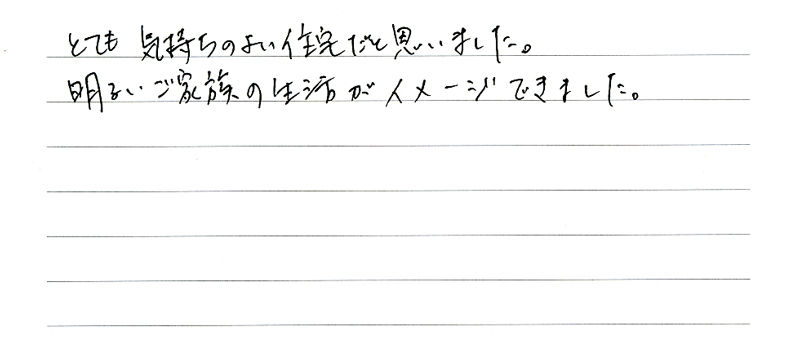 とても気持ちのよい住宅だと思いました。
明るいご家族の生活がイメージできました。